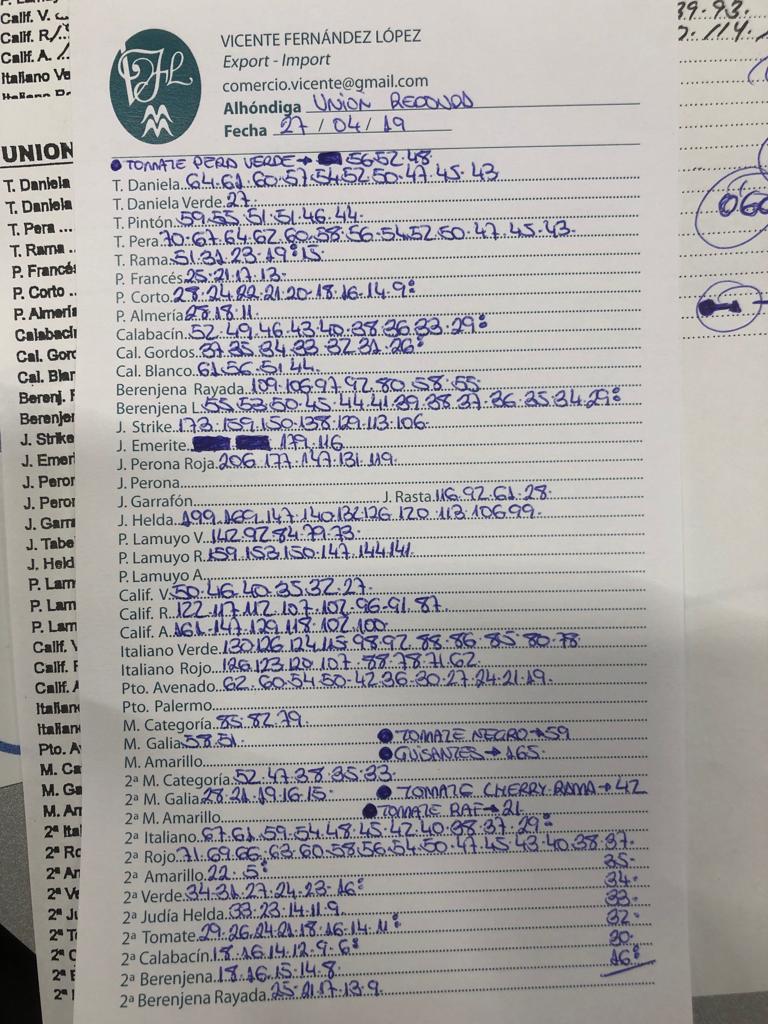 VICENTE FERNÁNDEZ LÓPEZ
Export - Import
comercio.vicente@gmail.com
Alhóndiga UNION REDONDA
Fecha 27/04/19
TOMATE PERA VERDE → 56.52.48
T. Daniela 64.61.60.57.54.52.50.47.45.43
T. Daniela Verde 27
T. Pintón 59.55.51.51.46.44
T. Pera 70.67.64.62.60.58.56.54.52.50.47.45.43
T. Rama 51.31.23.19.15
P. Francés 25.21.17.13
P. Corto 28.24.22.21.20.18.16.14.9
P. Almería 28.18.11
Calabacín 52.49.46.43.40.38.36.33.29
Cal. Gordos 37.35.34.33.32.31.26
Cal. Blanco 61.56.51.44
Berenjena Rayada 109.106.97.92.80.58.55
Berenjena L. 55.53.50.45.44.41.39.38.37.36.35.34.29
J. Strike 173.159.150.138.129.113.106
J. Emerite 179.116
J. Perona Roja 206.177.147.131.119
J. Perona
J. Garrafón J. Rasta 116.92.61.28
J. Helda 199.169.147.140.132.126.120.113.106.99
P. Lamuyo V. 142.92.84.79.73
P. Lamuyo R. 159.153.150.147.144.141
P. Lamuyo A.
Calif. V. 50.46.40.35.32.27
Calif. R. 122.117.112.107.102.96.91.87
Calif. A. 161.147.129.118.102.100
Italiano Verde 130.126.124.115.98.92.88.86.85.80.78
Italiano Rojo 126.123.120.107.88.78.71.62
Pto. Avenado 62.60.54.50.42.36.30.27.24.21.19
Pto. Palermo
M. Categoría 85.82.79
M. Galia 58.51 TOMATE NEGRO → 59
M. Amarillo GUISANTES → 165
2ª M. Categoría 52.47.38.35.33
2ª M. Galia 28.21.19.16.15 TOMATE CHERRY RAMA → 42
2ª M. Amarillo TOMATE RAF → 21
2ª Italiano 67.61.59.54.48.45.42.40.38.37.29
2ª Rojo 71.69.66.63.60.58.56.54.50.47.45.43.40.38.37
2ª Amarillo 22.5 35
2ª Verde 34.31.27.24.23.16 34
2ª Judía Helda 33.23.14.11.9 33
2ª Tomate 29.26.24.21.18.16.14.11 32
2ª Calabacín 18.16.14.12.9.6 30
2ª Berenjena 18.16.15.14.8 16
2ª Berenjena Rayada 25.21.17.13.9
Calif. V.
Calif. R.
Calif. A.
Italiano Ve
UNION
T. Daniela
T. Daniela
T. Pera ...
T. Rama ..
P. Francés
P. Corto ..
P. Almería
Calabacín
Cal. Gord
Cal. Blan
Berenj. R
Berenjen
J. Strike
J. Emeri
J. Peror
J. Peror
J. Garra
J. Tabe
J. Held
P. Lam
P. Lam
P. Lam
Calif. V
Calif. F
Calif. A
Italian
Italian
Pto. A
M. Ca
M. Ga
M. An
2ª Ital
2ª Ro
2ª An
2ª Ve
2ª Ju
2ª T
2ª C
2ª
2ª
39.93.
114.
060